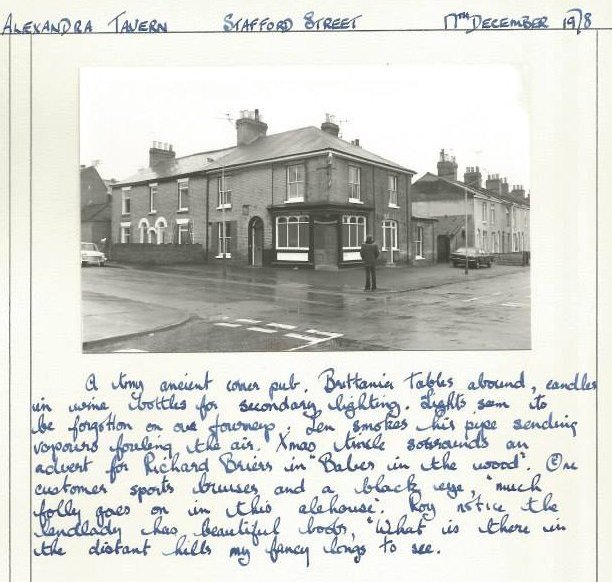 ALEXANDRA TAVERN STAFFORD STREET 17TH DECEMBER 1978
A tiny ancient corner pub. Brittania tables abound, candles
in wine bottles for secondary lighting. Lights seem to
be forgotton on our journeys. Len smokes his pipe sending
vapours fouling the air. Xmas tinsle sorrounds an
advert for Richard Briers in "Babes in the wood". One
customer sports bruises and a black eye, "much
folly goes on in this alehouse". Roy notice the
landlady has beautiful boobs, "What is there in
the distant hills my fancy longs to see.